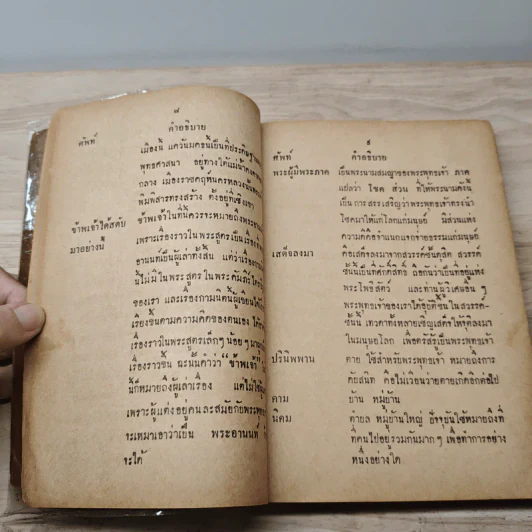 ๘
ศัพท์ คำอธิบาย
เมืองนี้ แคว้นมคธนี้เป็นที่ประดิษ
พุทธศาสนา อยู่ทางใต้แม่น้ำคง
กลาง เมืองราชคฤห์นครหลวงนั้น
พิมพิสารทรงสร้าง ตั้งอยู่ที่เชิงเขา
ข้าพเจ้าได้สดับ ข้าพเจ้าในที่นี้ควรจะหมายถึงพระอา
มาอย่างนี้ เพราะเรื่องราวในพระสูตรเป็นเรื่อง
อานนท์เป็นผู้เล่าทั้งสิ้น แต่ว่าเรื่อง
นี้ไม่มีในพระสูตรในพระคัมภีร์ใด
ของเรา และเรื่องกามนิตผู้เขียนได้
เรียงขึ้นตามความคิดของตนเอง ได้
เรื่องราวในพระสูตรเล็กๆ น้อยๆ มา
เรื่องราวขึ้น ฉะนั้นคำว่า "ข้าพเจ้า"
นี้ก็หมายถึงผู้เล่าเรื่อง แต่ไม่ใช่
เพราะผู้แต่งอยู่คนละสมัยกับพระพุทธ
จะเหมาเอาว่าเป็น พระอานนท์
จะได้
๙
ศัพท์ คำอธิบาย
พระผู้มีพระภาค เป็นพระนามสมญาของพระพุทธเจ้า ภาค
แปลว่า โชค ส่วน ที่ให้พระนามดังนี้
เป็นการสรรเสริญว่าพระพุทธเจ้าทรงนำ
โชคมาให้แก่โลกแก่มนุษย์ มีส่วนแห่ง
ความดีคือจำแนกแจกจ่ายธรรมแก่มนุษย์
เสด็จลงมา คือเสด็จลงมาจากสวรรค์ชั้นดุสิต สวรรค์
ชั้นนี้เป็นที่ศักดิ์สิทธิ์ ถือกันว่าเป็นที่อยู่แห่ง
พระโพธิสัตว์ และท่านผู้วิเศษอื่นๆ
พระพุทธเจ้าของเราได้อุบัติขึ้นในสวรรค์-
ชั้นนี้ เทวดาทั้งหลายเชิญเสด็จให้จุติลงมา
ในมนุษยโลก เพื่อตรัสรู้เป็นพระพุทธเจ้า
ปรินิพพาน ตาย ใช้สำหรับพระพุทธเจ้า หมายถึงการ
ดับสนิท คือไม่เวียนว่ายตายเกิดอีกต่อไป
คาม บ้าน หมู่บ้าน
นิคม ตำบล หมู่บ้านใหญ่ ปัจจุบันใช้หมายถึงที่
ที่คนไปอยู่รวมกันมากๆ เพื่อทำการอย่าง
หนึ่งอย่างใด